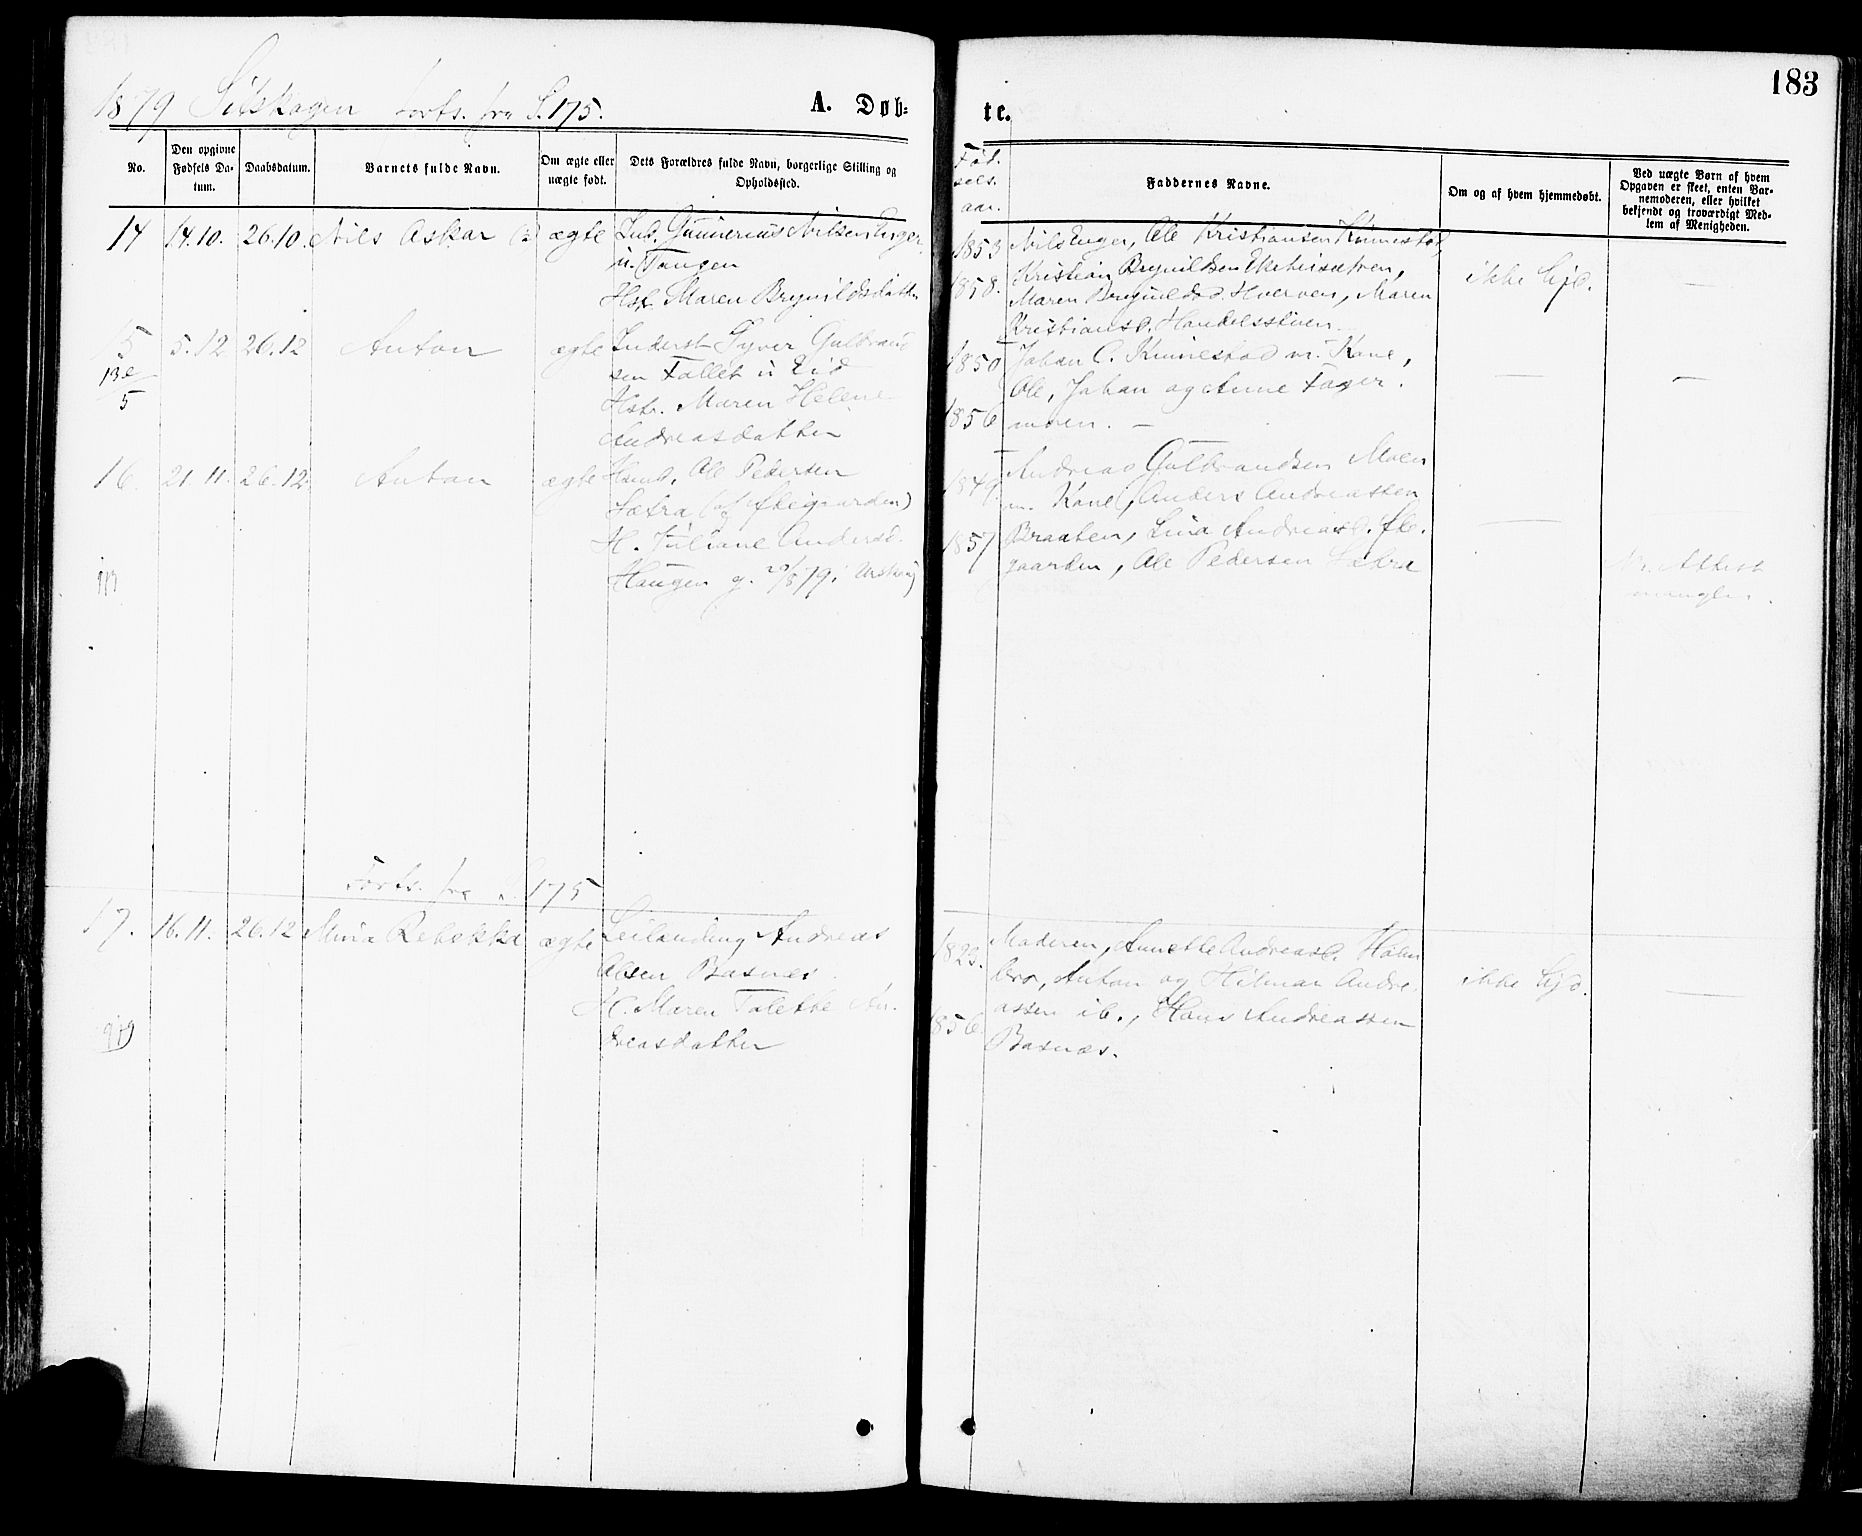 183
1879 Setskogen forts. fra S. 175.
A. Døb-
te.
No.
Den opgivne Fødsels Da-
tum.
Daabsdatum.
Barnets fulde Navn.
Om ægte eller
uægte født.
Dets Forældres fulde Navn, borgerlige Stilling og
Opholdssted.
Fød-
sels-
aar.
Faddernes Navne.
Om og af hvem hjemmedøbt.
Ved uægte Børn af hvem
Opgaven er skeet, enten Bar-
nemoderen, eller hvilket
bekjendt og troværdigt Med-
lem af Menigheden.
14 14.10. 26.10. Nils Oskar ægte Ind. Gunnerius Nilsen Enger
u. Tangen
Hst. Maren Brynildsdatter
1853
1858.
Nils Enger, Ole Kristiansen Kinnestad,
Kristian Brynildsen
Maren Brynildsd. Hverven, Maren
Kristiansd. Handelsstuen.
ikke hjd.
—
15 5.12 26.12 Anton ægte Inderst Syver Guldbrand
sen Fallet u Eid
Hstr. Maren Helene
Andreasdatter
13e
5
1850
1856
Johan C. Kinnestad m. Kone,
Ole, Johan og Anne Fager-
moen. —
—
—
16. 21.11. 26.12. Anton ægte Husmd. Ole Pedersen
Sætra
H. Juliane Andersd.
Haugen g. 79 i Urskoug
1849
1857
Andreas Guldbrandsen Moen
m. Kone, Anders Andreassen
Braaten, Lina Andreasd.
gaarden, Ole Pedersen Sætra
—
Attest
mangler.
Forts. fra S. 175
17. 16.11. 26.12 Mina Rebekka ægte Leilænding Andreas
Olsen Basnæs.
H. Maren Tolette An-
dreasdatter
1823.
1856.
Moderen, Annette Andreasd. Holm
bro, Anton og Hilmar Andre-
assen ib., Hans Andreassen
Basnæs.
ikke hjd.
—